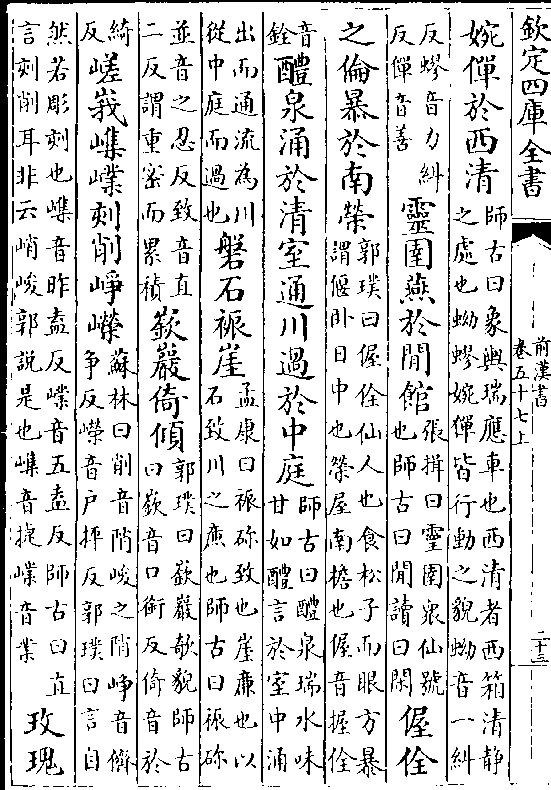 欽定四庫全書
前漢書
卷五十七上
二十三
婉僤於西清師古曰象輿瑞應車也西清者西箱清靜之處也蚴蟉婉僤皆行動之貌蚴音一糾
反蟉音力糾反僤音善靈圄燕於閒館張揖曰靈圄衆仙號也師古曰閒讀曰閑偓佺
之倫暴於南榮郭璞曰偓佺仙人也食松子而眼方暴謂偃卧日中也榮屋南檐也偓音握佺
音銓醴泉涌於清室通川過於中庭師古曰醴泉瑞水味甘如醴言於室中涌
出而通流為川從中庭而過也磐石裖崖孟康曰裖砛致也崖廉也以石致川之廉也師古曰裖砛
並音之忍反致音直二反謂重宻而累積嶔巖倚傾郭璞曰嶔巖欹貌師古曰嶔音口銜反倚音於
綺反嵯峩嶕嶪刻削崢嶸蘇林曰削音陗峻之陗崢音儕争反嶸音户抨反郭璞曰言自
然若彫刻也嶕音昨盍反嶪音五盍反師古曰直言刻削耳非云峭峻郭說是也嶕音捷嶪音業玫瑰